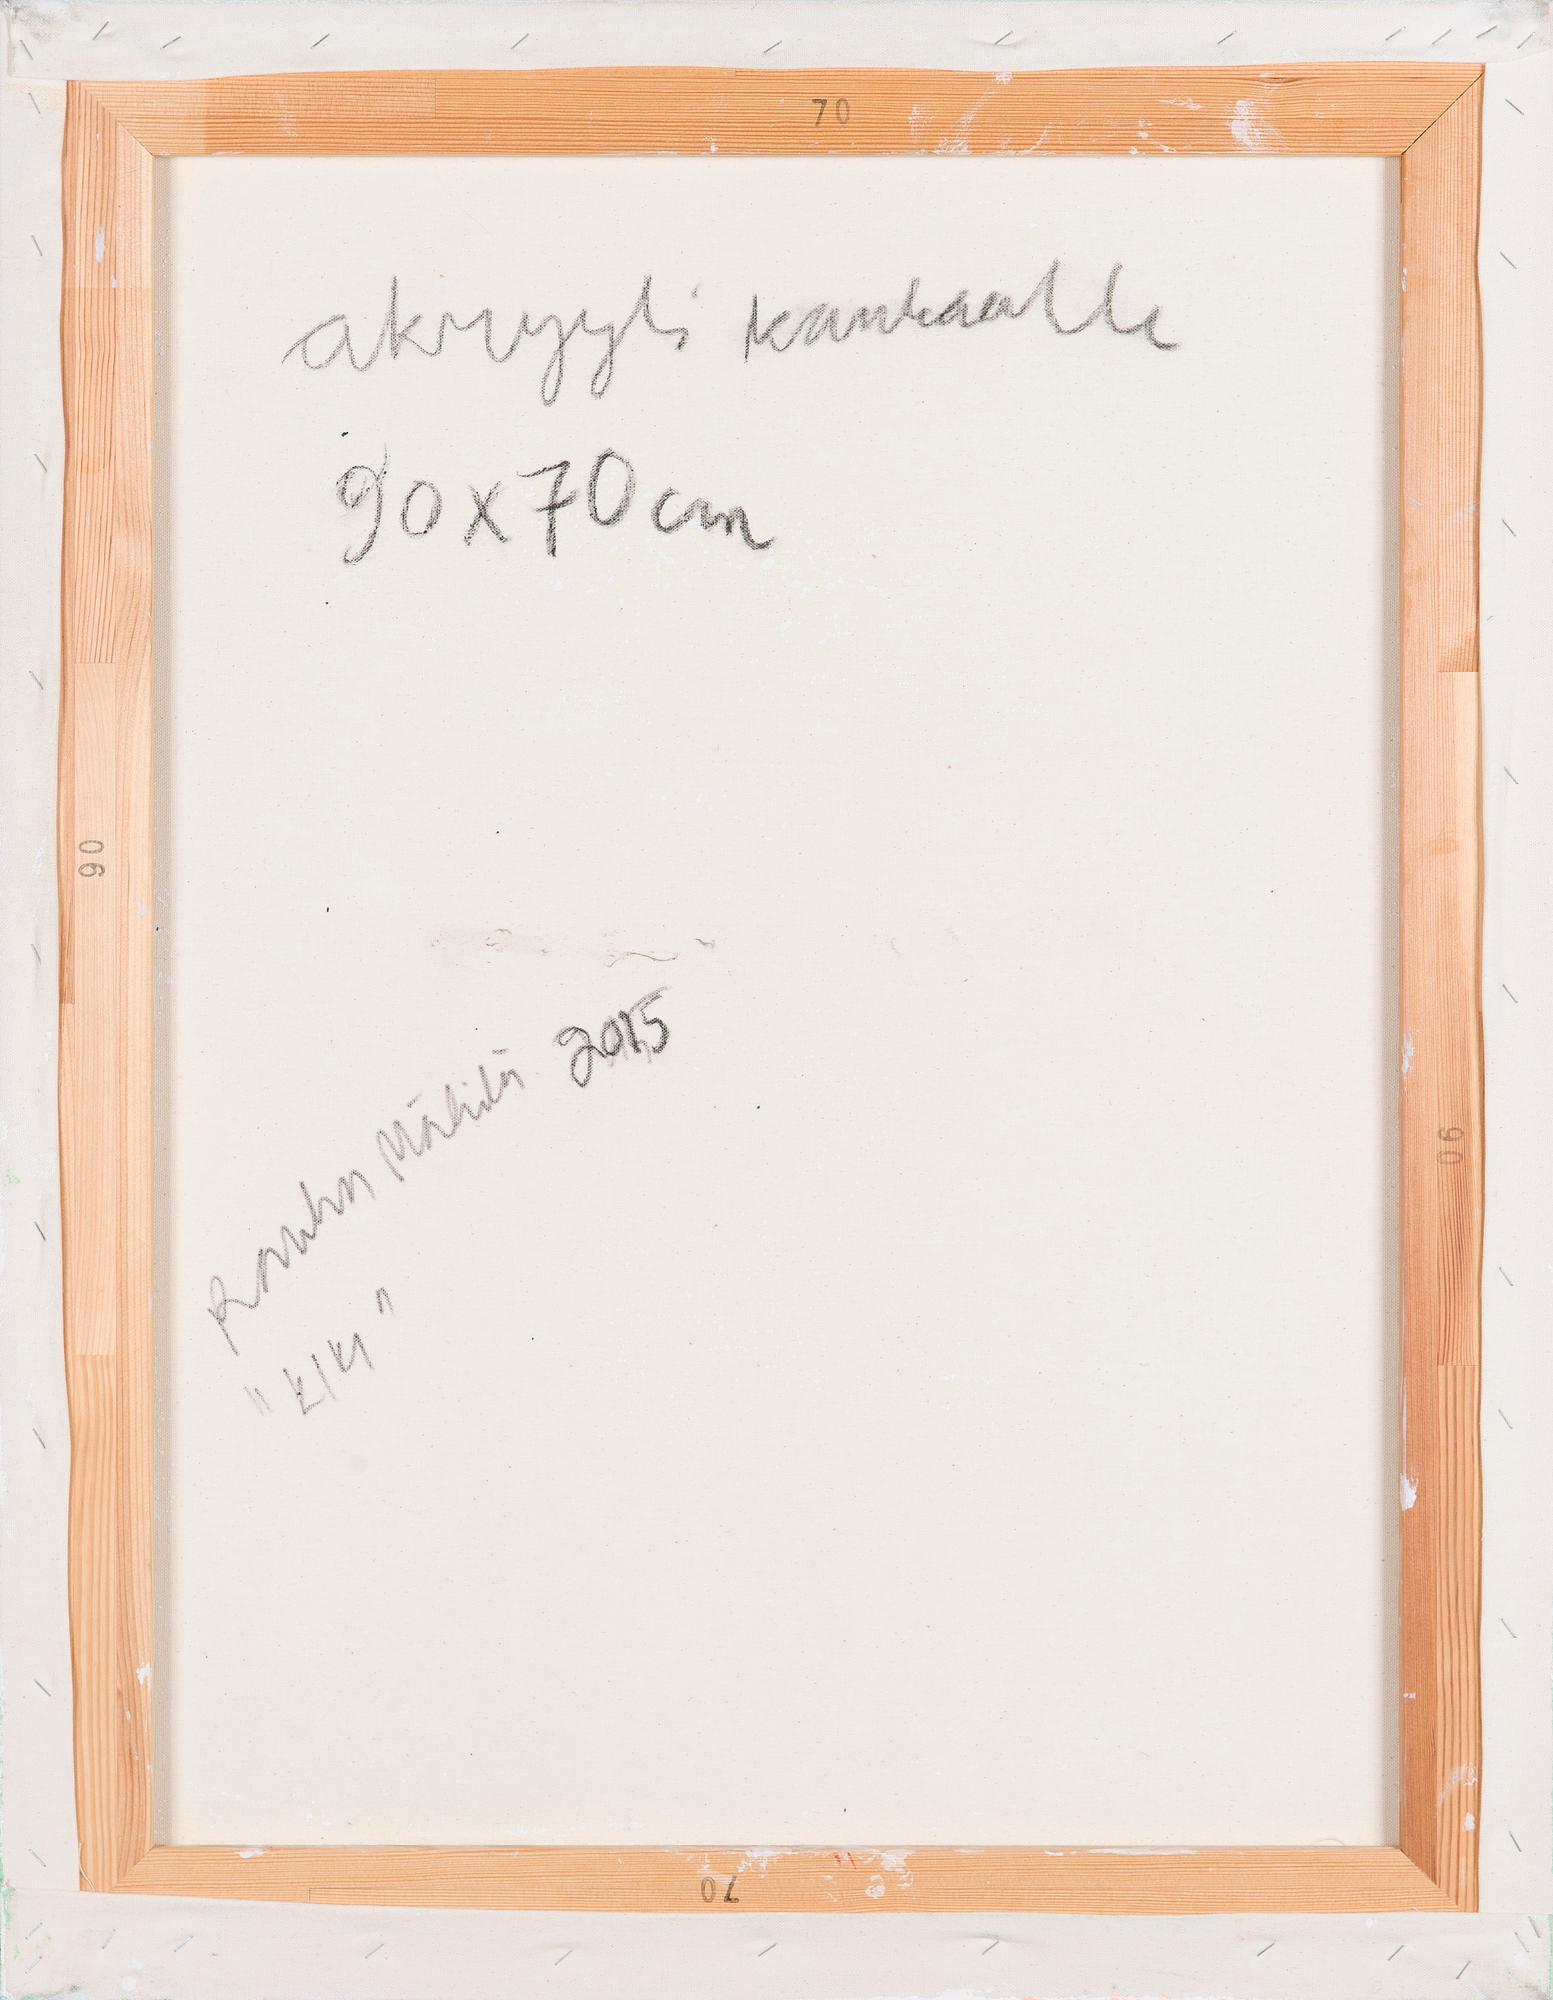 70
akryyli kankaalle
90x70cm
90
Rauha Mäkilä 2015
"KIKI"
90
70